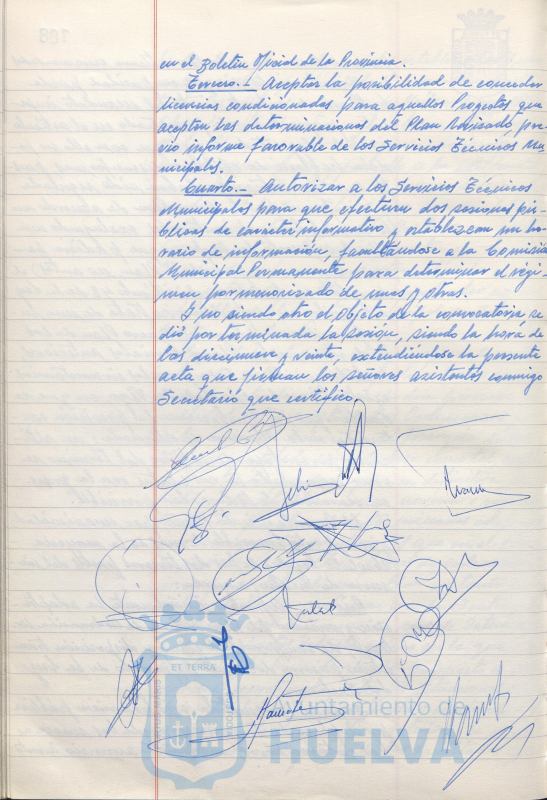 en el Boletín Oficial de la Provincia.
Tercero.- Aceptar la posibilidad de conceder
licencias condicionadas para aquellos Proyectos que
acepten las determinaciones del Plan Revisado, pre-
vio informe favorable de los Servicios Técnicos Mu-
nicipales.
Cuarto.- Autorizar a los Servicios Técnicos
Municipales para que efectuen dos sesiones pú-
blicas de carácter informativo y establezcan un ho-
rario de información, facultándose a la Comisión
Municipal Permanente para determinar el régi-
men pormenorizado de unas y otras.
Y no siendo otro el objeto de la convocatoria se
dió por terminada la sesión, siendo la hora de
las diecinueve y veinte, extendiéndose la presente
acta que firman los señores asistentes conmigo
Secretario que certifico.
ET TERRA
Ayuntamiento de
HUELVA